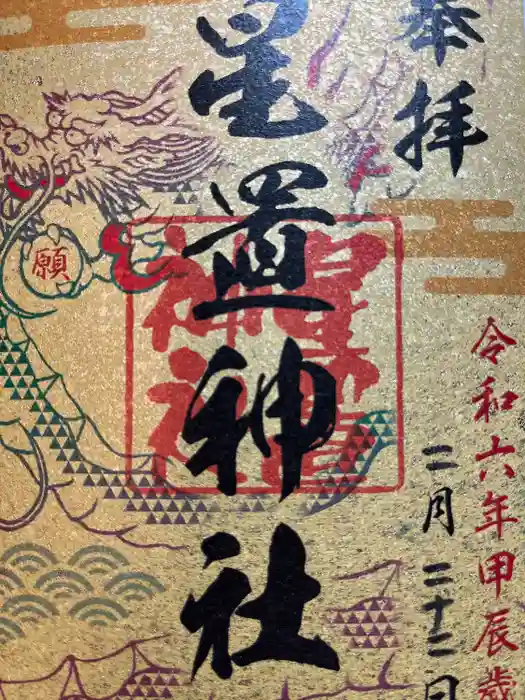 奉拝
星置神社
星置神社
令和六年甲辰歳
二月二十二日
願